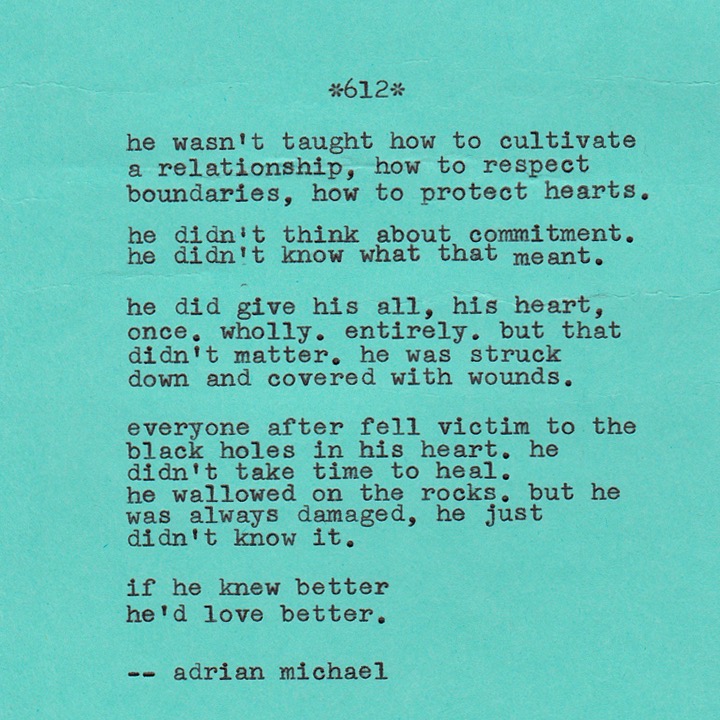 *612*
he wasn't taught how to cultivate
a relationship, how to respect
boundaries, how to protect hearts.
he didn't think about commitment.
he didn't know what that meant.
he did give his all, his heart,
once. wholly. entirely. but that
didn't matter. he was struck
down and covered with wounds.
everyone after fell victim to the
black holes in his heart. he
didn't take time to heal.
he wallowed on the rocks. but he
was always damaged, he just
didn't know it.
if he knew better
he'd love better.
-- adrian michael